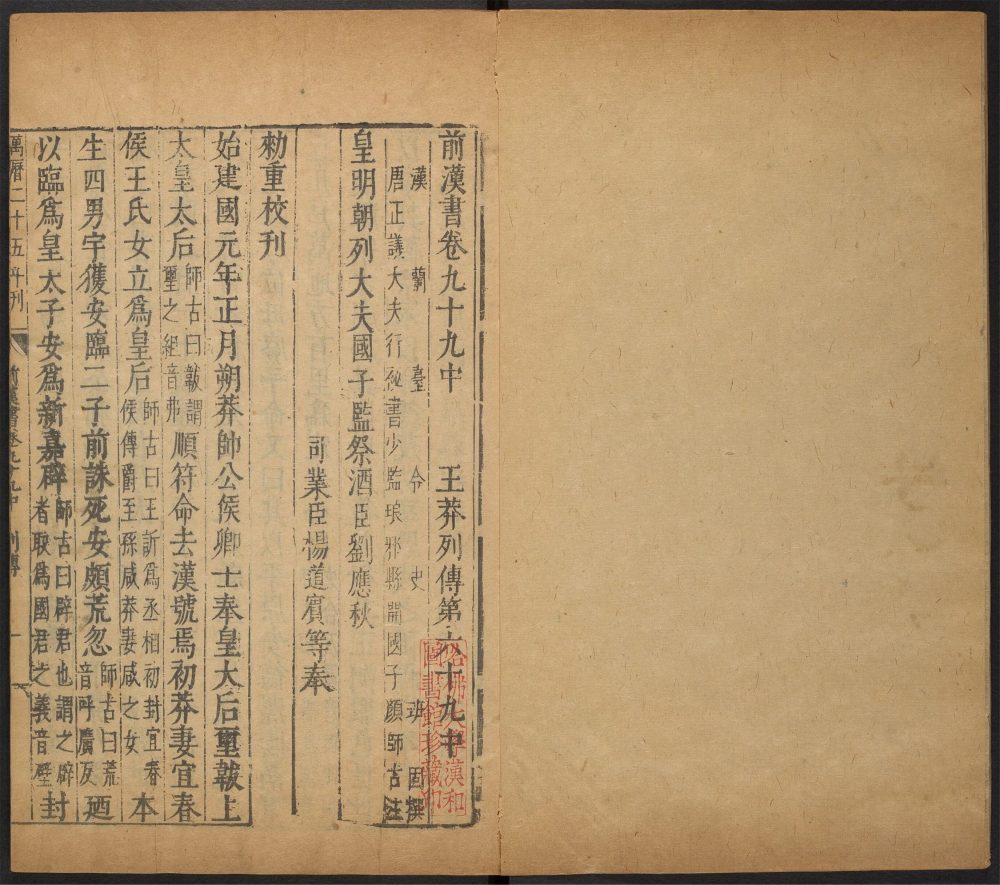 前漢書卷九十九中　王莽列傳第六十九中
漢蘭臺令史班固撰
唐正議大夫行祕書少監琅邪縣開國子顏師古注
皇明朝列大夫國子監祭酒臣劉應秋
司業臣楊道賓等奉
勑重校刊
始建國元年正月朔莽帥公侯卿士奉皇太后璽韍上
太皇太后師古曰韍謂璽之組音弗順符命去漢號焉初莽妻宜春
侯王氏女立爲皇后師古曰王訢爲丞相初封宜春侯傳爵至孫咸莽妻咸之女本
生四男宇獲安臨二子前誅死安頗荒忽師古曰荒音呼廣反廼
以臨爲皇太子安爲新嘉辟師古曰辟君也謂之辟者取爲國君之義音壁封
萬曆二十五年刊　前漢書卷九十九中　列傳　一
哈佛大學漢和
圖書館珍藏印